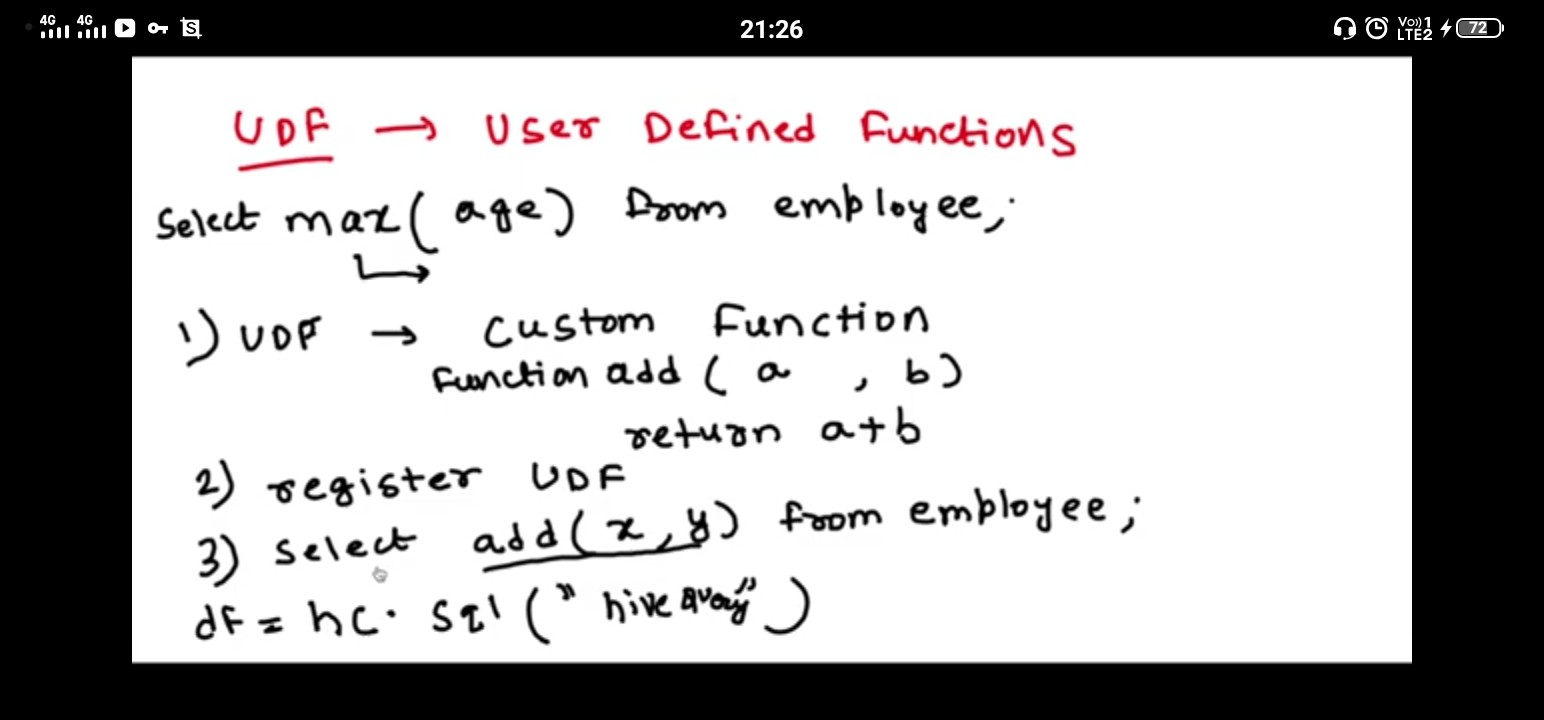 4G 4G 21:26 Vo)) 1 LTE2 72
UDF → User Defined Functions
Select max( age) from employee;
1) UDF → Custom Function
Function add ( a , b)
return a+b
2) register UDF
3) Select add( x, y) from employee;
df = hc. sql ( " hive query" )